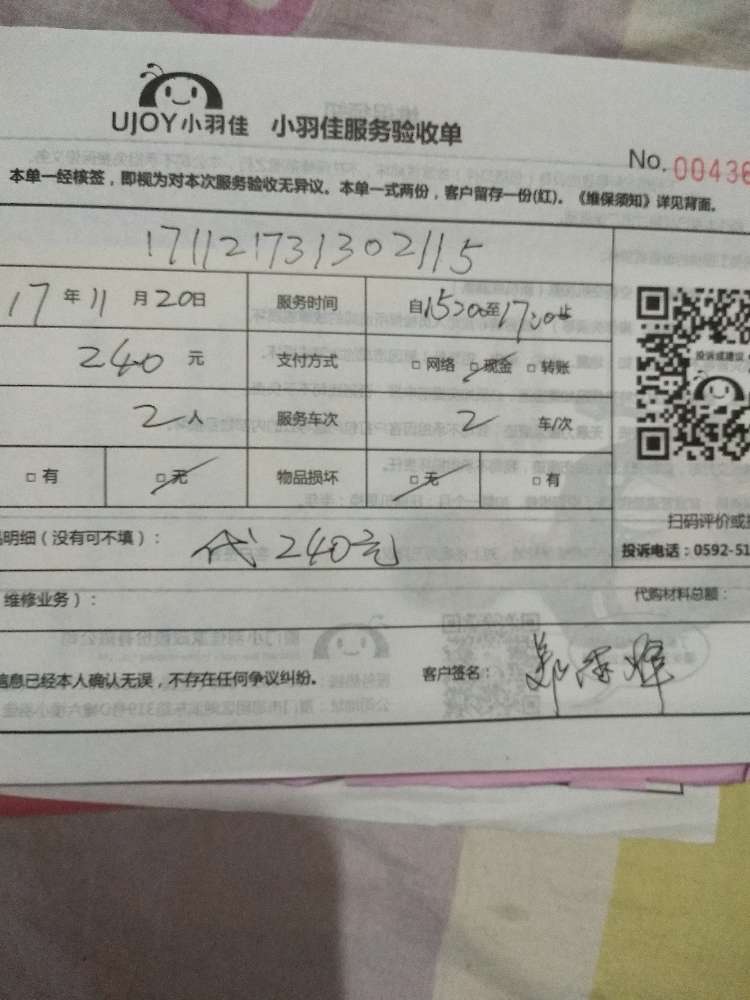 UJOY小羽佳 小羽佳服务验收单
No. 00436
本单一经核签，即视为对本次服务验收无异议。本单一式两份，客户留存一份(红)。《维保须知》详见背面。
171121731302115
17年11月20日 服务时间 自1520至1720
240元 支付方式 □网络 □现金 □转账
投诉或建议
2人 服务车次 2 车/次
□有 □无 物品损坏 □无 □有
扫码评价或
明细（没有可不填）： 代240元
投诉电话：0592-51
维修业务）： 代购材料总额：
信息已经本人确认无误，不存在任何争议纠纷。 客户签名：